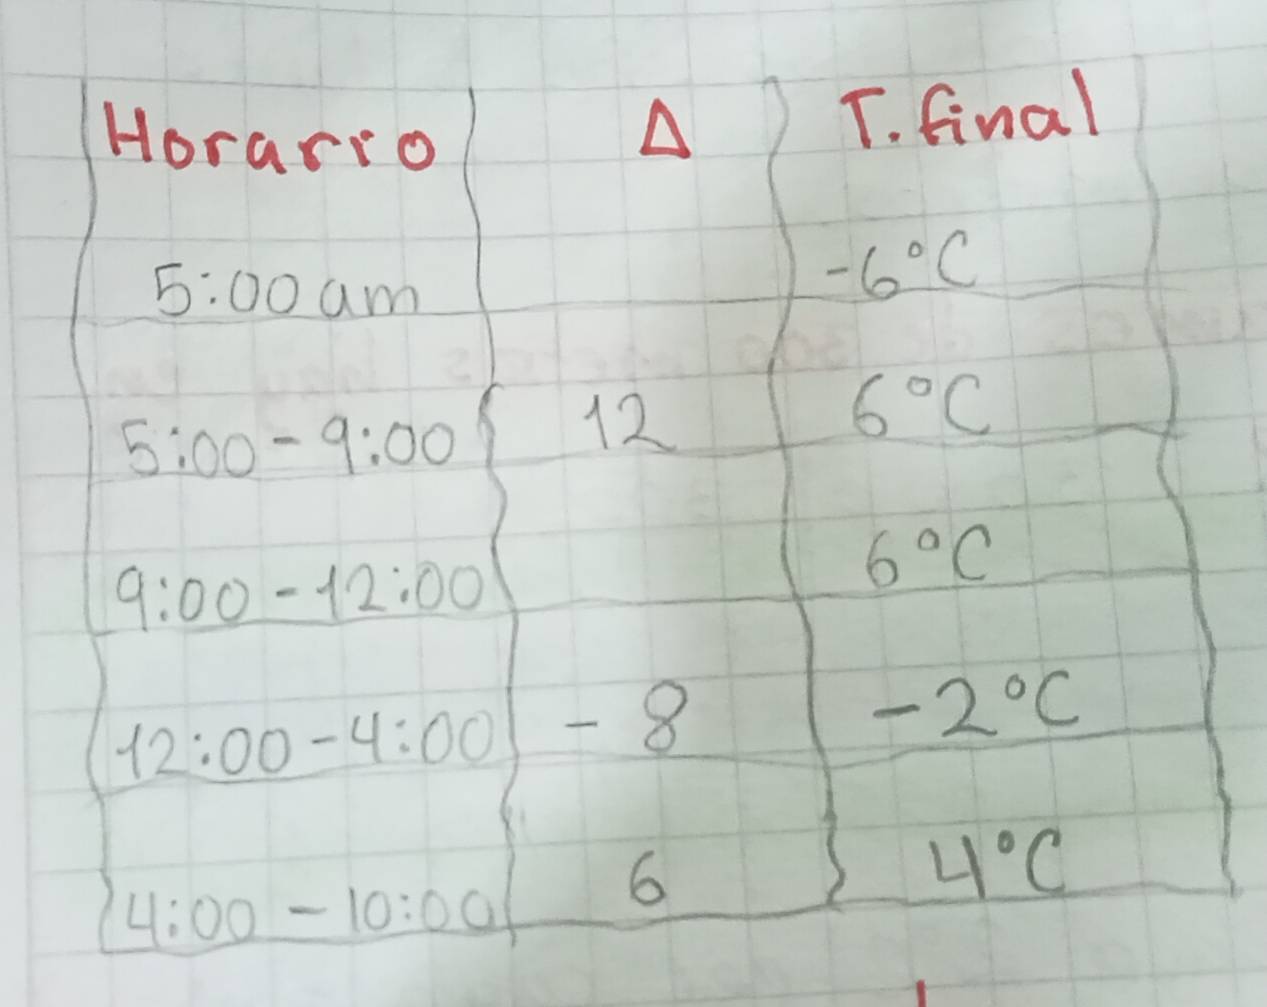 Horario Δ T. final
5:00 am -6°C
5:00 - 9:00 12 6°C
9:00 - 12:00 6°C
12:00 - 4:00 - 8 -2°C
4:00 - 10:00 6 4°C